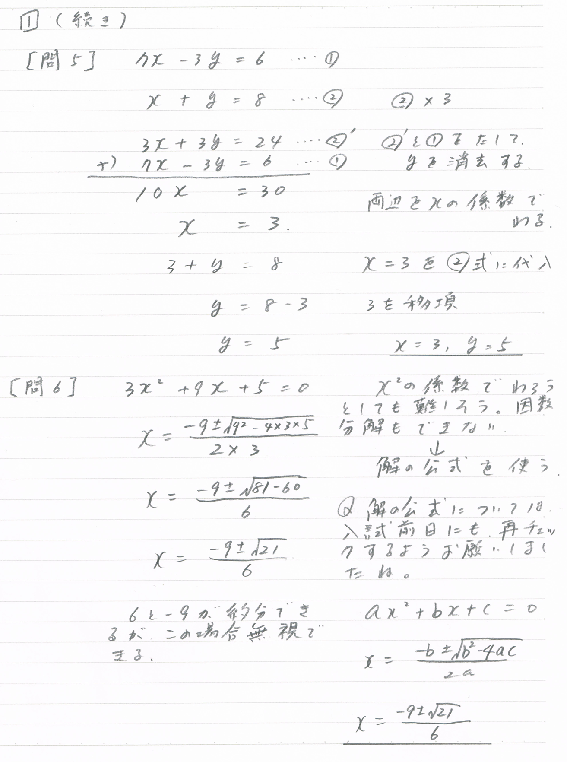 1 (続き)
[問5] 7x - 3y = 6 ‥‥①
x + y = 8 ‥‥② ②×3
3x + 3y = 24 ‥‥②' ②'と①をたして、
+) 7x - 3y = 6 ‥‥① yを消去する
10x = 30
両辺をxの係数で
x = 3. わる.
3 + y = 8 x = 3を②式に代入
y = 8 - 3 3を移項
y = 5 x = 3, y = 5
[問6] 3x² + 9x + 5 = 0 x²の係数でわろう
としても難しそう。因数
x = (-9±√(9²-4×3×5))/(2×3) 分解もできない
↓
解の公式を使う
x = (-9±√(81-60))/6
Q 解の公式については、
入試前日にも、再チェッ
x = (-9±√21)/6 クするようお願いしまし
たね。
6と-9が約分でき ax² + bx + c = 0
るが、この場合無視で
きる. x = (-b±√(b²-4ac))/2a
x = (-9±√21)/6